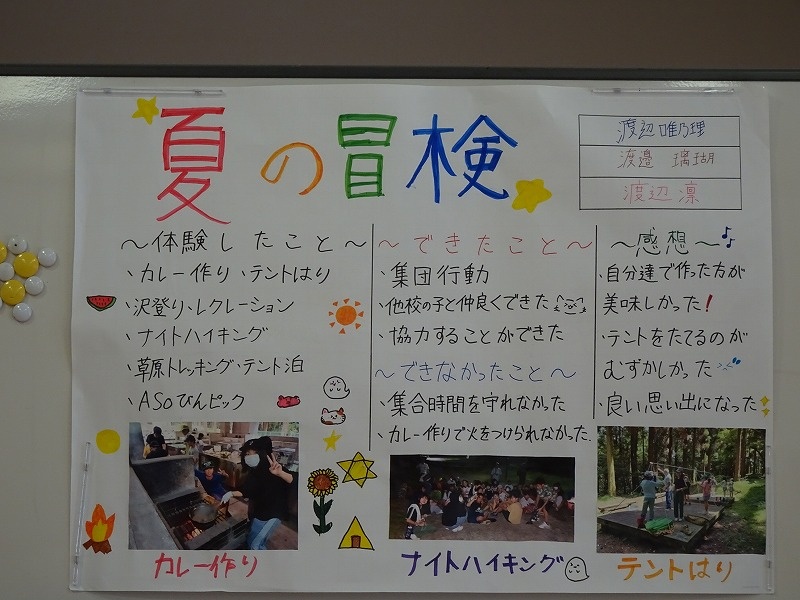 夏の冒検
渡辺唯乃理
渡邉 璃瑚
渡辺凛
～体験したこと～
、カレー作り、テントはり
、沢登り、レクレーション
、ナイトハイキング
、草原トレッキング、テント泊
、ASOびんピック
～できたこと～
、集団行動
、他校の子と仲良くできた
、協力することができた
～できなかったこと～
、集合時間を守れなかった
、カレー作りで火をつけられなかった.
～感想～
、自分達で作った方が
美味しかった！
、テントをたてるのが
むずかしかった
、良い思い出になった
カレー作り
ナイトハイキング
テントはり